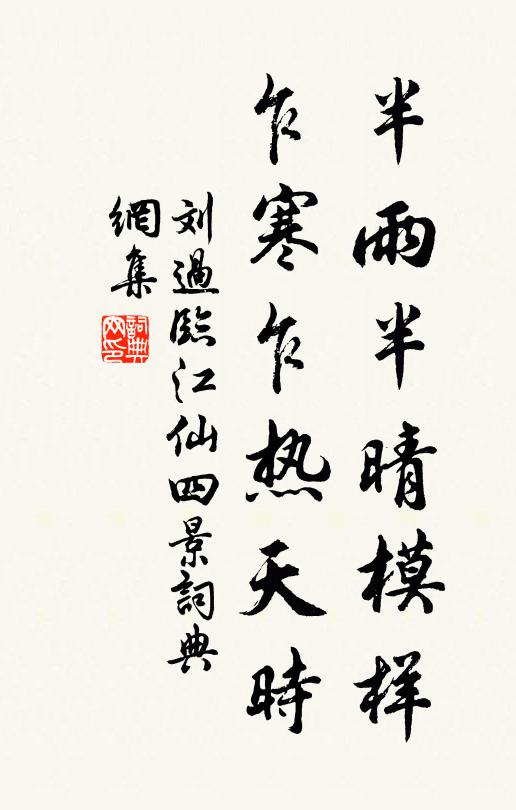 半雨半晴模样
乍寒乍热天時
刘過臨江仙四景詞典
網集
詞典网印